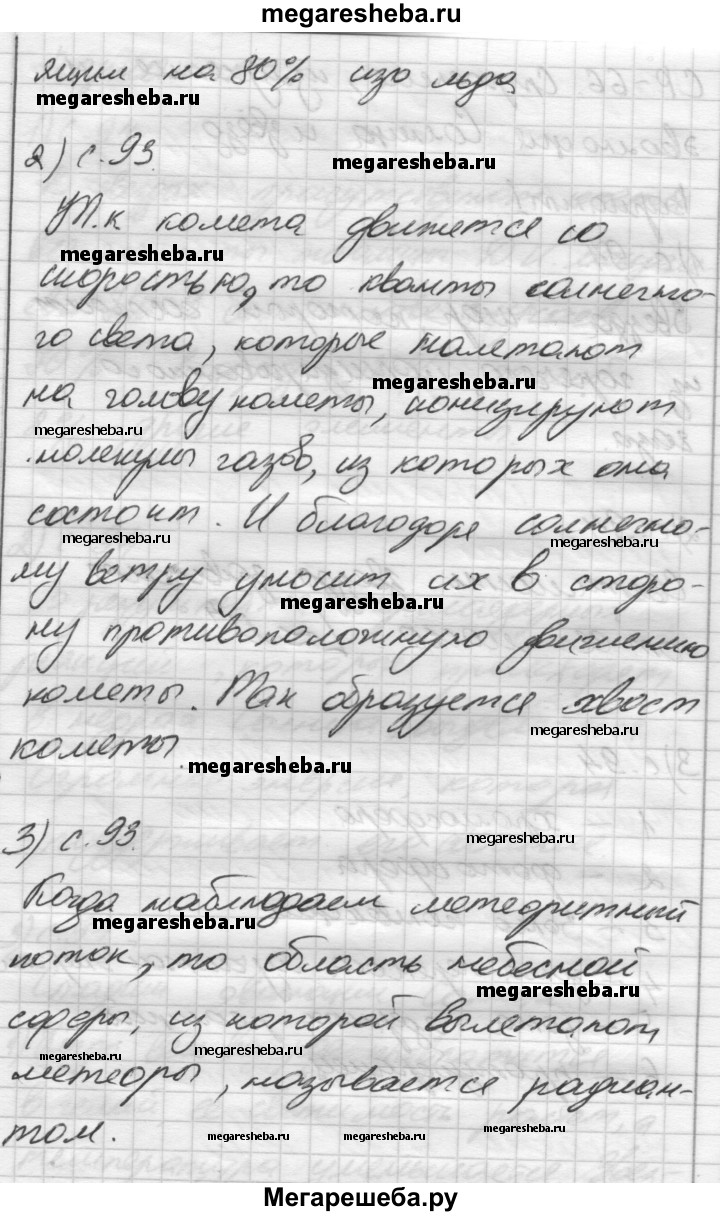 megaresheba.ru
ящил на 80% изо льда
megaresheba.ru
2) с. 93.
megaresheba.ru
Т.к комета движется со
megaresheba.ru
скоростью, то кванты солнечно-
го света, которые налетают
megaresheba.ru
на голову кометы, ионизируют
megaresheba.ru
молекулы газов, из которых она
состоит. И благодоре солнечно-
megaresheba.ru megaresheba.ru
му ветру уносит их в сторо-
megaresheba.ru
ну противоположную движению
кометы. Так образуется хвост
megaresheba.ru
кометы.
megaresheba.ru
3) с. 93.
megaresheba.ru
Когда наблюдаем метеоритный
megaresheba.ru
поток, то область небесной
megaresheba.ru
сферы, из которой вылетают
megaresheba.ru megaresheba.ru
метеоры, называется радиан-
том.
megaresheba.ru megaresheba.ru megaresheba.ru
Мегарешеба.ру